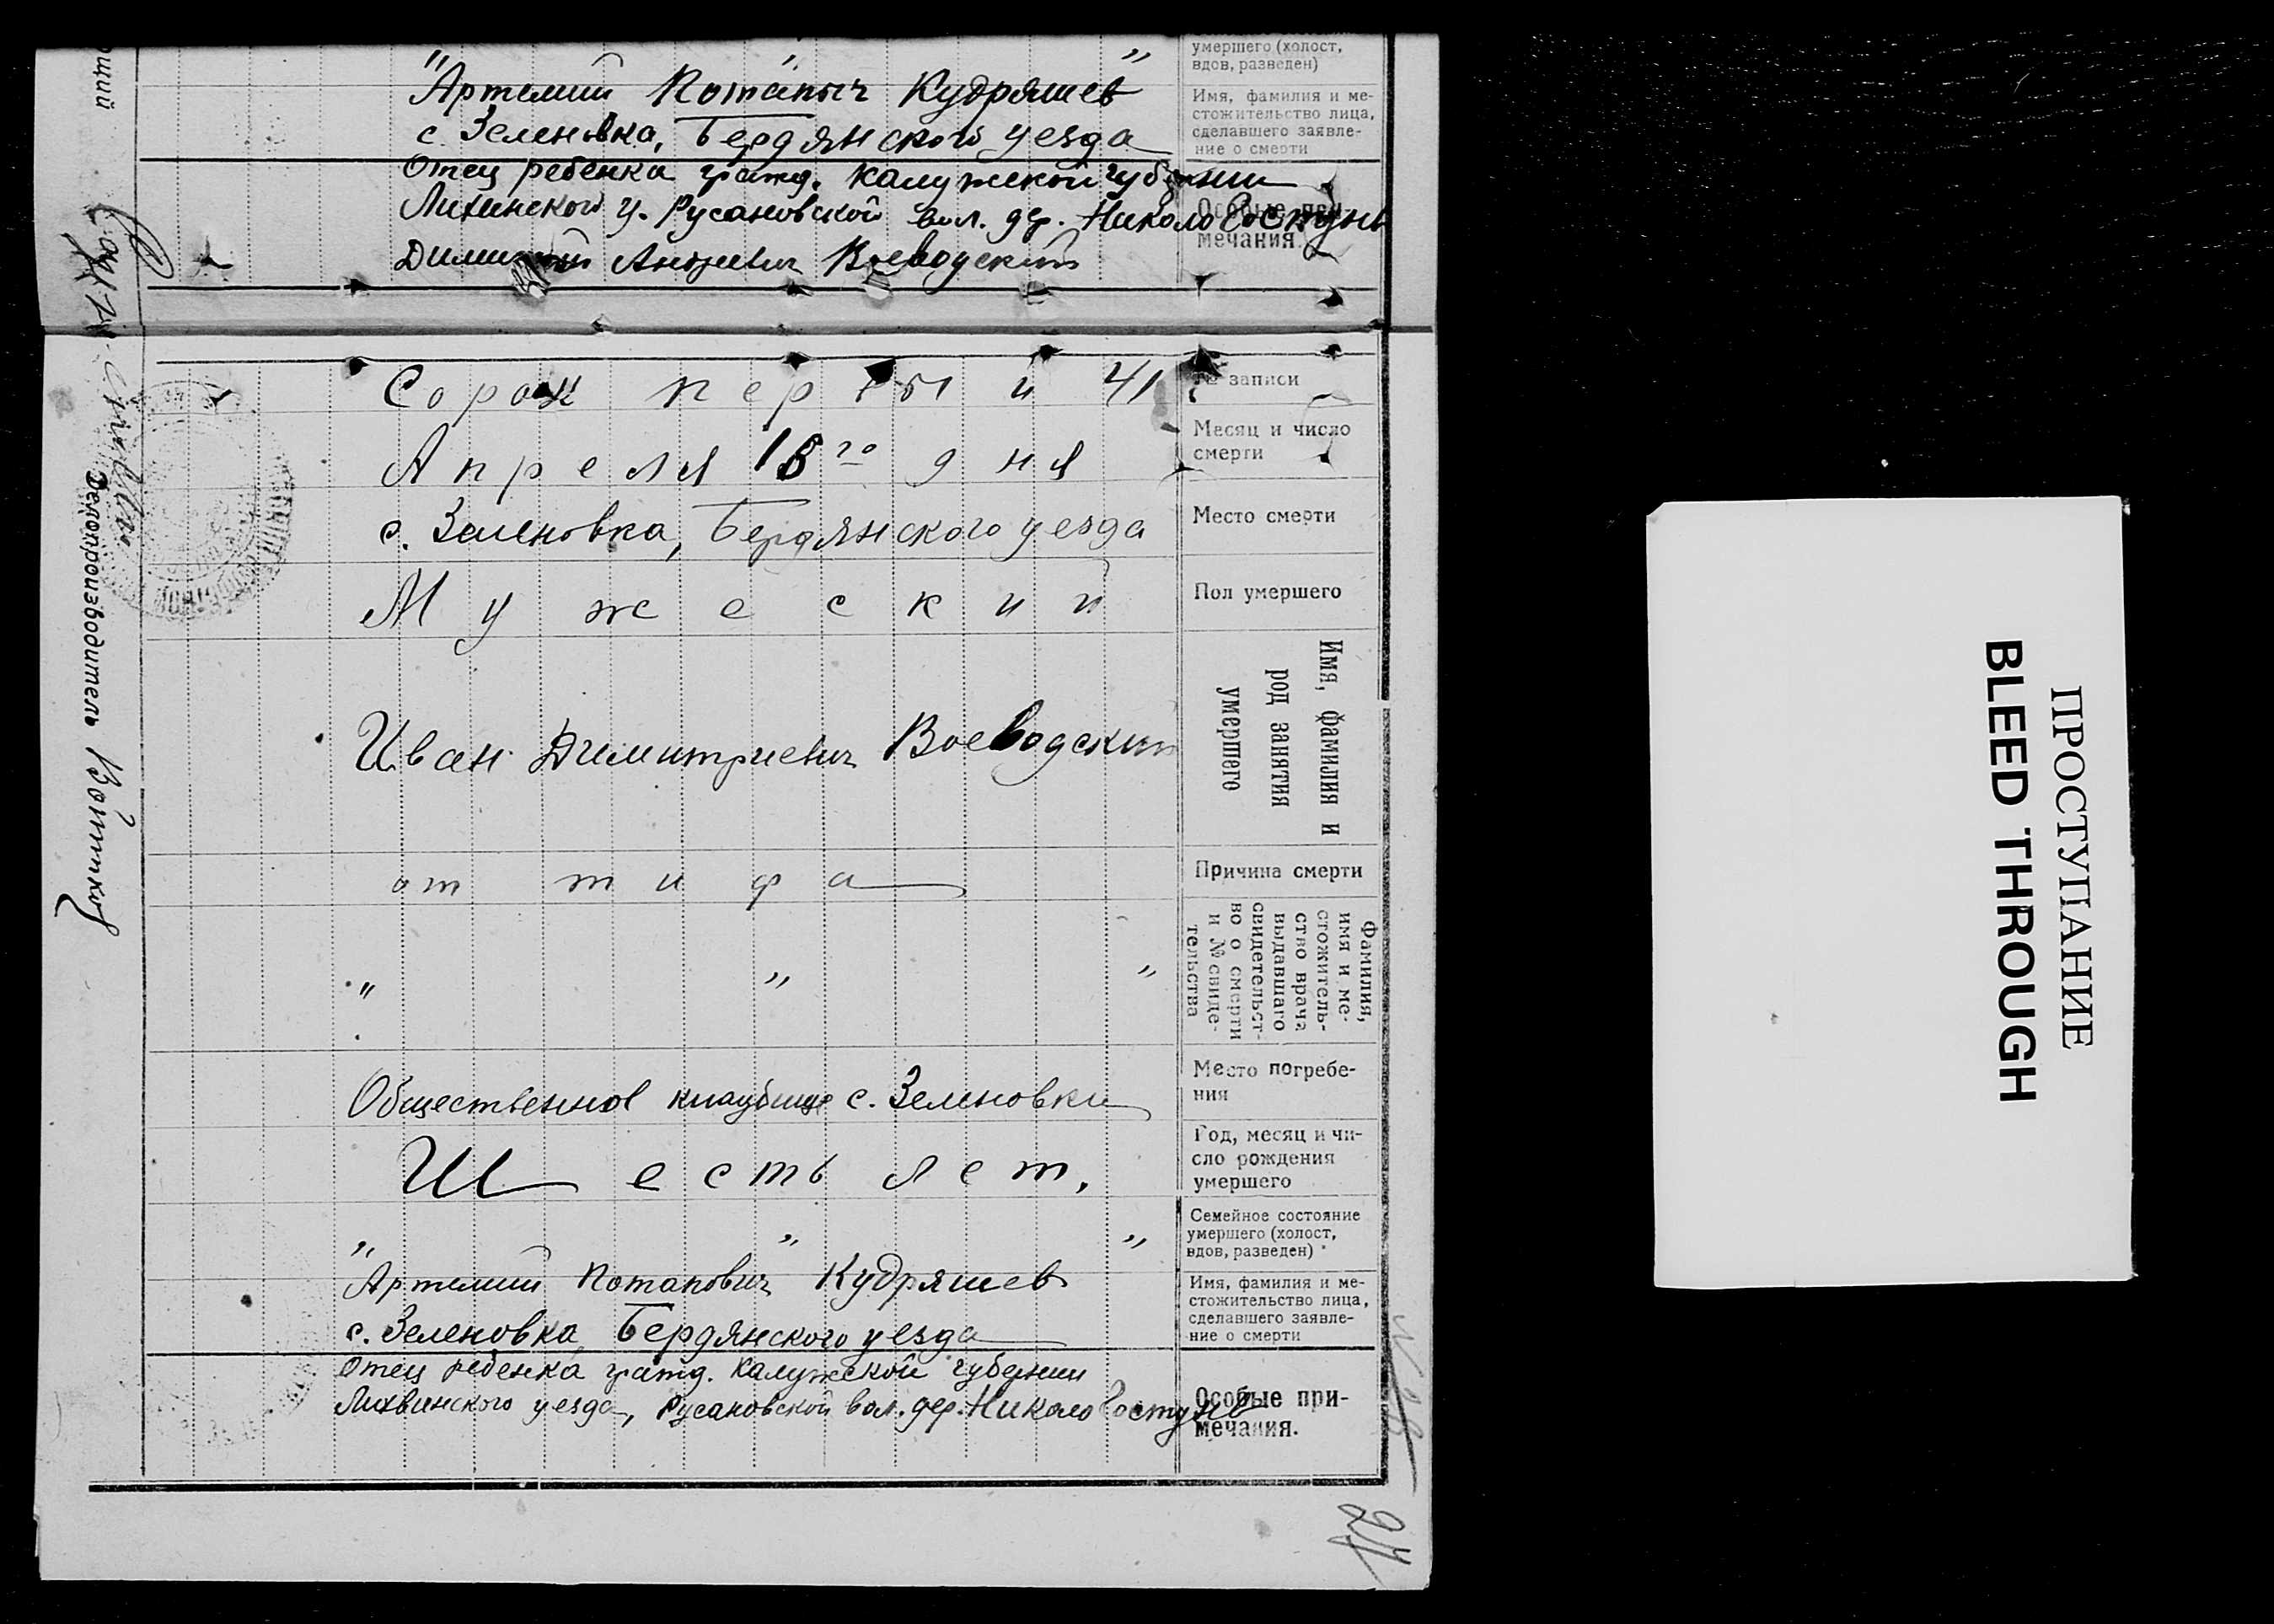 " " "
умершего (холост,
вдов, разведен)
Артемий Потапыч Кудряшев
с. Зеленовка, Бердянского уезда
Имя, фамилия и ме-
стожительство лица,
сделавшего заявле-
ние о смерти
Отец ребенка гражд. Калужской губернии
Лихвинского у. Русановской вол. дер. Николо Гостунь
Димитрий Воеводский
Особые при-
мечания.
Сорок первый 41
№ записи
Апреля го дня
Месяц и число
смерти
с. Зеленовка, Бердянского уезда
Место смерти
Мужеский
Пол умершего
Иван Димитриевич Воеводский
Имя, фамилия и
род занятия
умершего
от тифа
Причина смерти
" " "
Фамилия,
имя и ме-
стожитель-
ство врача
выдавшаго
свидетельст-
во о смерти
и № свиде-
тельства
Общественное кладбище с. Зеленовки
Место погребе-
ния
Шесть лет.
Год, месяц и чи-
сло рождения
умершего
" " "
Семейное состояние
умершего (холост,
вдов, разведен)
Артемий Потапович Кудряшев
с. Зеленовка Бердянского уезда
Имя, фамилия и ме-
стожительство лица,
сделавшего заявле-
ние о смерти
Отец ребенка гражд. Калужской губернии
Лихвинского уезда, Русановской вол. дер. Николо Гостунь
Особые при-
мечания.
Делопроизводитель
24
ПРОСТУПАНИЕ
BLEED THROUGH